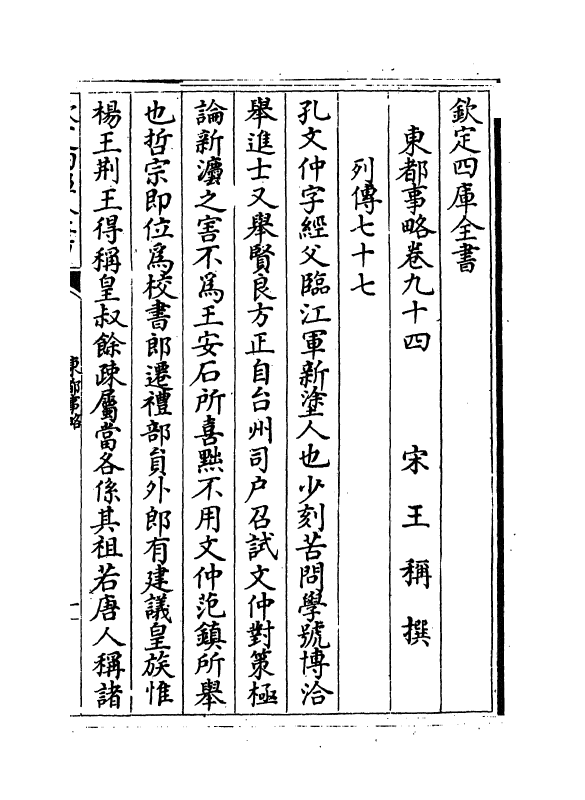 欽定四庫全書
東都事略卷九十四　宋　王稱　撰
列傳七十七
孔文仲字經父臨江軍新塗人也少刻苦問學號博洽
舉進士又舉賢良方正自台州司户召試文仲對策極
論新灋之害不爲王安石所喜黜不用文仲范鎮所舉
也哲宗即位爲校書郎遷禮部員外郎有建議皇族惟
楊王荆王得稱皇叔餘疎屬當各係其祖若唐人稱諸
東都事略
一